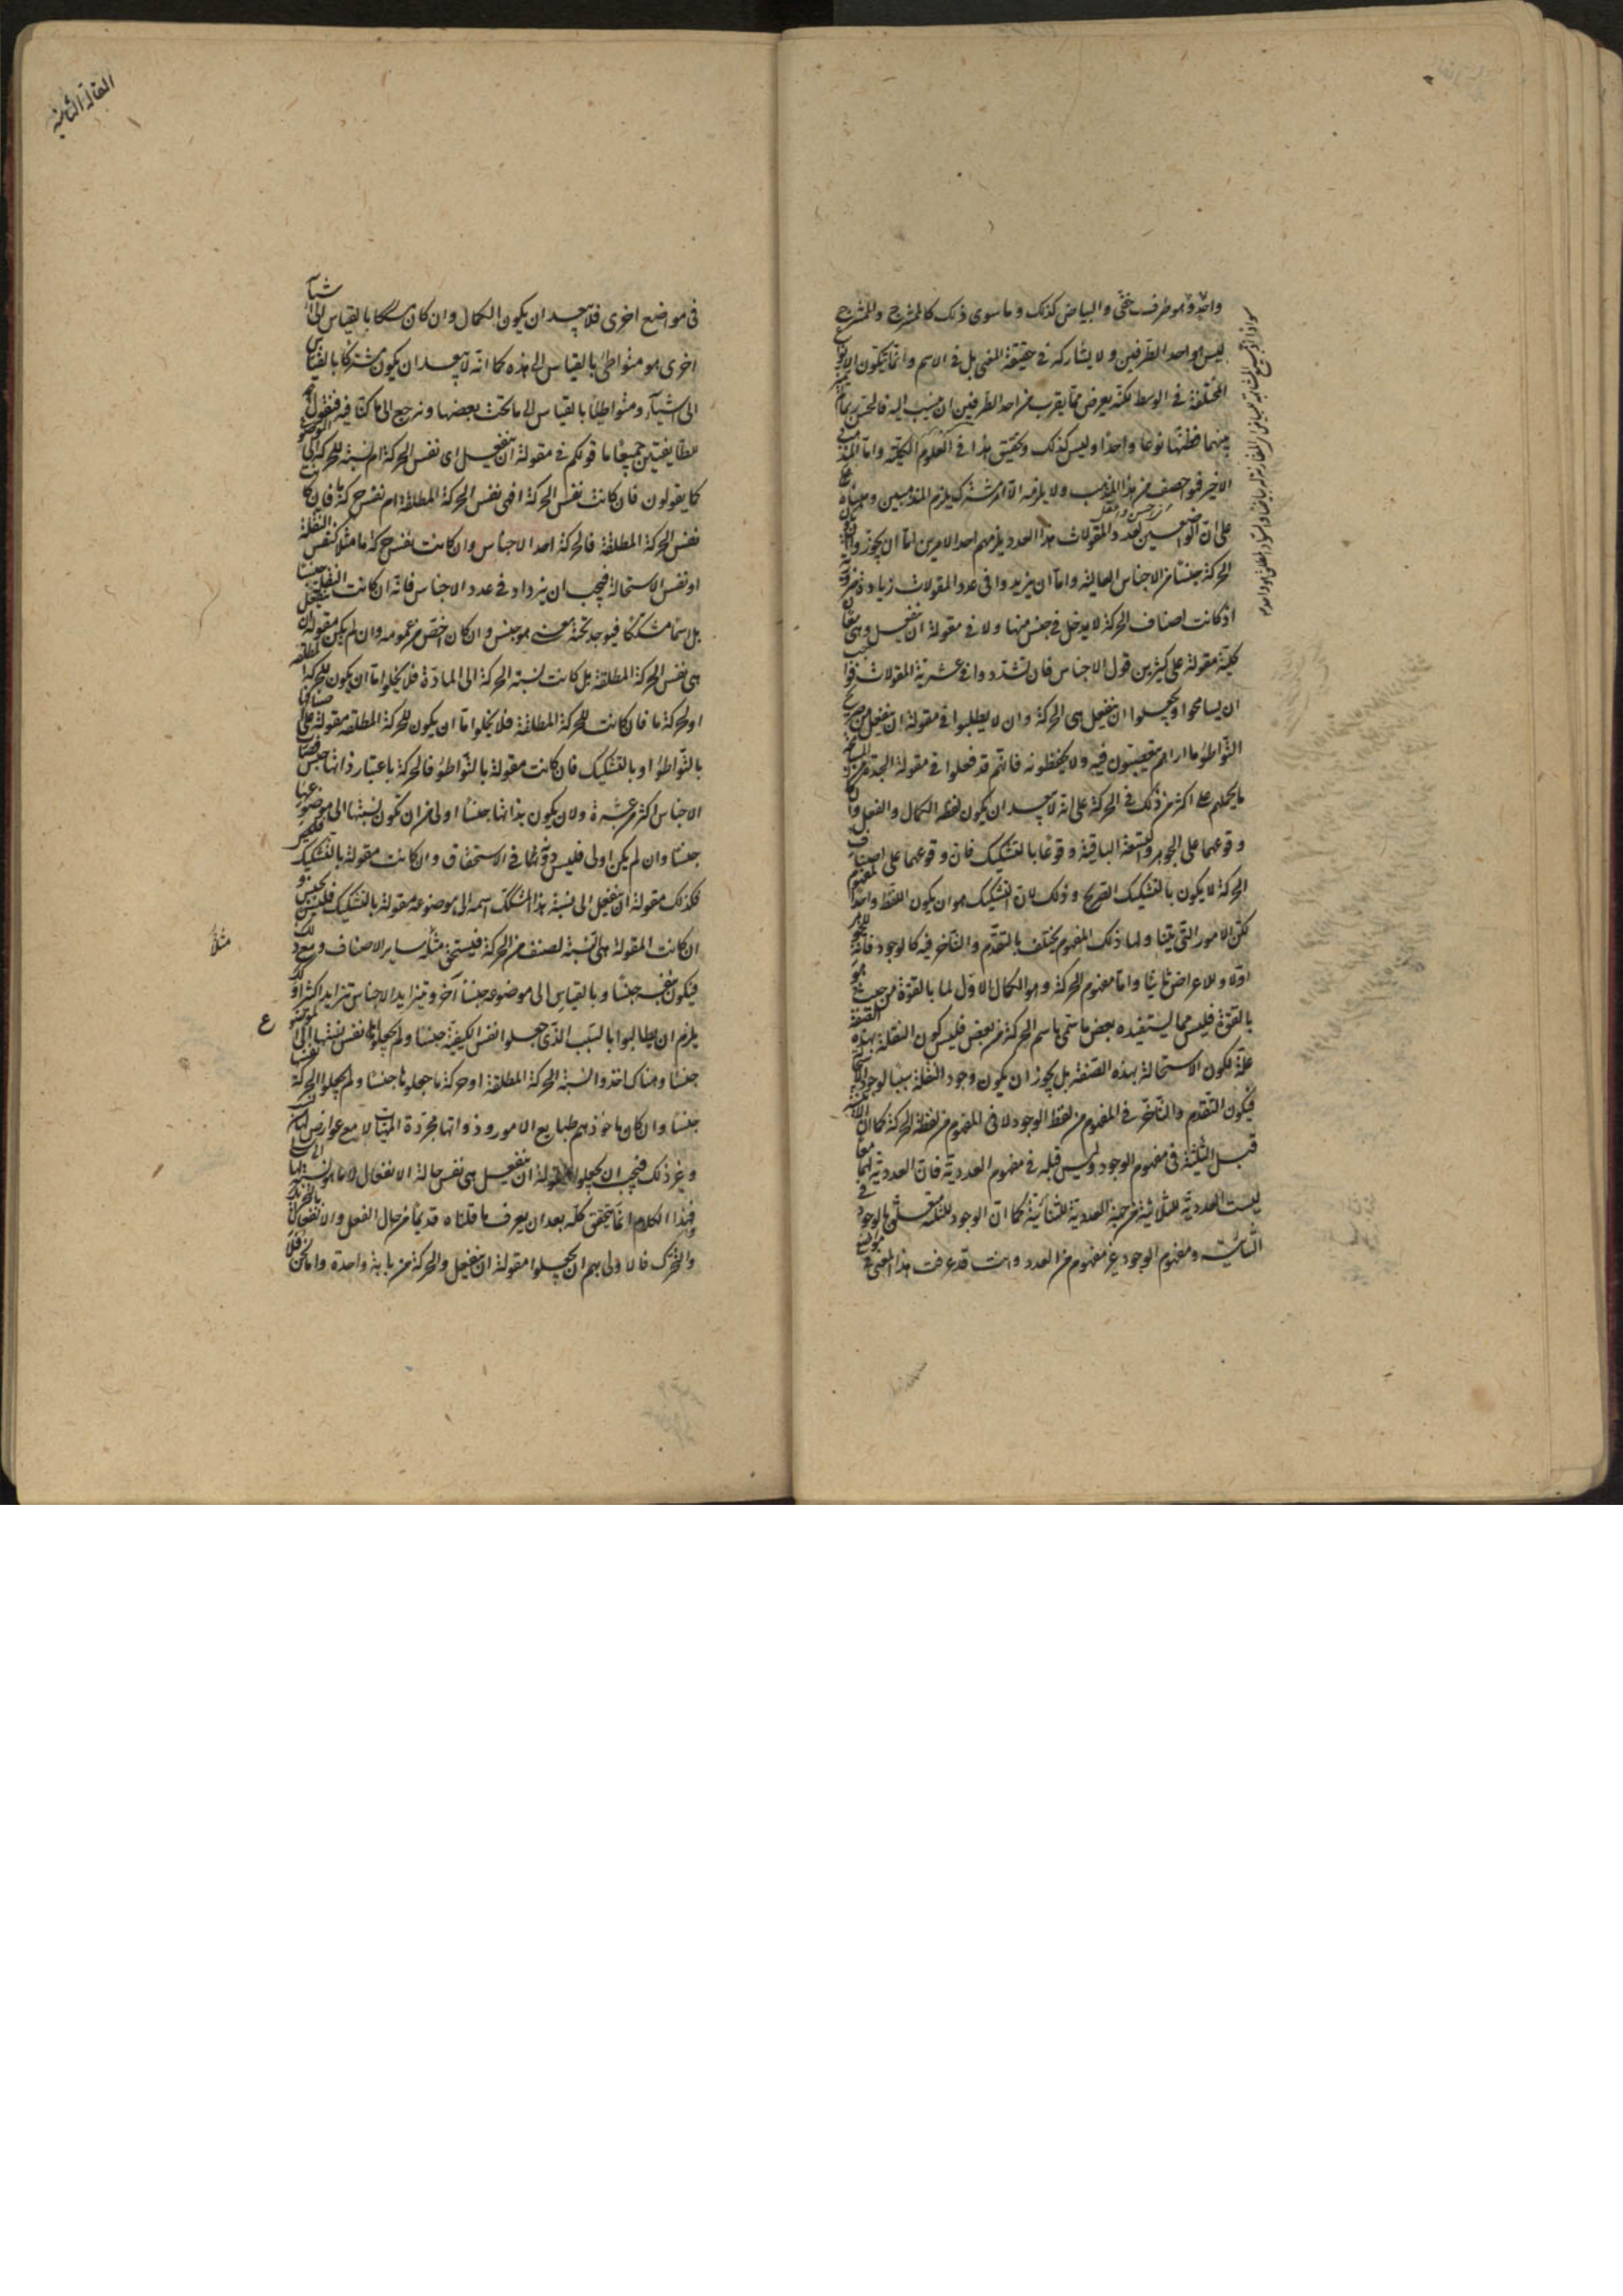 واحد وهو طرف خفى والبياض كذلك وما سوى ذلك كالممتزج والممتزج
ليس هو احد الطرفين ولا يشاركه فى حقيقة المعنى بل فى الاسم وانما يتكون الانواع
المختلفة فى الوسط لكنه يعرض مما يقرب من احد الطرفين ان ينسب اليه فالحس ربما لم يميز
بينهما فظنهما نوعا واحدا وليس كذلك وتحقيق هذا فى العلوم الكلية واما المذهب
الاخير فهو احصف من هذا المذهب ولا يلزمه الا امر مشترك يلزم المذهبين ومبناه
على ان الواضعين لعدد المقولات هذا العدد يلزمهم احد الامرين اما ان يجوزوا
الحركة جنسا من الاجناس العالية واما ان يزيدوا فى عدد المقولات زيادة ضرورة
اذ كانت اصناف الحركة لا يدخل فى جنس منها ولا فى مقولة ان ينفعل وهى معان
كلية مقولة على كثيرين قول الاجناس فان تشددوا فى عشرية المقولات فواجب
ان يسامحوا ويجعلوا ان ينفعل هى الحركة وان لا يطلبوا فى مقولة ان ينفعل من صريح
التواطؤ ما اراهم يتعصبون فيه ولا يحفظونه فانهم قد فعلوا فى مقولة الجدة من المسامحة
ما يحملهم على اكثر من ذلك فى الحركة على انه لا يبعد ان يكون لفظ الكمال والفعل وان كان
وقوعهما على الجوهر والتسعة الباقية وقوعا بالتشكيك فان وقوعهما على اصناف
الحركة لا يكون بالتشكيك الصريح وذلك لان التشكيك هو ان يكون اللفظ واحد المفهوم
لكن الامور التى يتناولها ذلك المفهوم يختلف بالتقدم والتأخر فيه كالوجود فانه للجوهر
اولا وللاعراض ثانيا واما مفهوم الحركة وهو الكمال الاول لما بالقوة من حيث هو
بالقوة فليس مما يستفيده بعض ما سمى باسم الحركة من بعض فليس كون النقلة بهذه الصفة
علة لكون الاستحالة بهذه الصفة بل يجوز ان يكون وجود النقلة سببا لوجود الاستحالة
فيكون التقدم والتأخر فى المفهوم من لفظ الوجود لا فى المفهوم من لفظة الحركة كما ان الاثنينية
قبل الثلثية فى مفهوم الوجود وليس قبله فى مفهوم العددية فان العددية لهما معا
ليست العددية للثلاثية من جهة العددية للثنائية كما ان الوجود للثلثية متعلق بالوجود فى
الثنائية ومفهوم الوجود غير مفهوم من العدد وانت قد عرفت هذا المعنى فى
المقالة الثانية
فى مواضع اخرى فلا يبعد ان يكون الكمال وان كان مشككا بالقياس الى اشياء
اخرى هو متواطئ بالقياس الى هذه كما انه لا يبعد ان يكون مشتركا بالقياس
الى اشياء ومتواطئا بالقياس الى ما تحت بعضها ونرجع الى ما كنا فيه فنقول
للطايفتين جميعا ما قولكم فى مقولة ان ينفعل اى نفس الحركة ام نسبة للحركة الى الموضوع
كما يقولون فان كانت نفس الحركة افهى نفس الحركة المطلقة ام نفس حركة ما فان كانت
نفس الحركة المطلقة فالحركة احد الاجناس وان كانت نفس حركة ما مثلا كنفس النقلة
او نفس الاستحالة فيجب ان يزداد فى عدد الاجناس فانه ان كانت النقلة جنسا
بل اسما مشككا فيوجد تحته معنى هو جنس وان كان اخص من عمومه وان لم يكن مقولة ان ينفعل
هى نفس الحركة المطلقة بل كانت نسبة الحركة الى المادة فلا يخلوا اما ان يكون للحركة المطلقة
او لحركة ما فان كانت للحركة المطلقة فلا يخلوا اما ان يكون للحركة المطلقة مقولة على اصنافها
بالتواطؤ او بالتشكيك فان كانت مقولة بالتواطؤ فالحركة باعتبار ذاتها جنس فصار
الاجناس اكثر من عشرة ولان يكون بذاتها جنسا اولى من ان تكون نسبتها الى موضوعها
جنسا وان لم يكن اولى فليس دونها فى الاستحقاق وان كانت مقولة بالتشكيك
فكذلك مقولة ان ينفعل الى نسبة هذا المشكك اسمه الى موضوعه مقولة بالتشكيك فليس بجنس
ان كانت المقولة هى النسبة لصنف من الحركة فيستحق مثله ساير الاصناف ومع ذلك
فيكون بنفسه جنسا وبالقياس الى موضوعه جنسا آخر ويتزايد الاجناس تزايدا كثيرا
يلزم ان يطالبوا بالسبب الذى جعلوا نفس الكيفية جنسا ولم يجعلوا نفس نسبتها الى الموضوع
جنسا وهناك اخذوا نسبة الحركة المطلقة او حركة ما جعلوها جنسا ولم يجعلوا الحركة نفسها
جنسا وان كان ماخوذهم طبايع الامور وذواتها مجردة الماهيات لا مع عوارض لها من نسب
وغير ذلك فيجب ان يجعلوا مقولة ان ينفعل هى نفس حالة الانفعال لا ما هو نسبتها الى شىء
فهذا الكلام انما يتحقق كله بعد ان يعرف ما قلناه قديما من حال الفعل والانفعال
والتحرك فالاولى بهم ان يجعلوا مقولة ان ينفعل والحركة من بابة واحدة واما نحن فلا
مثلا
ع